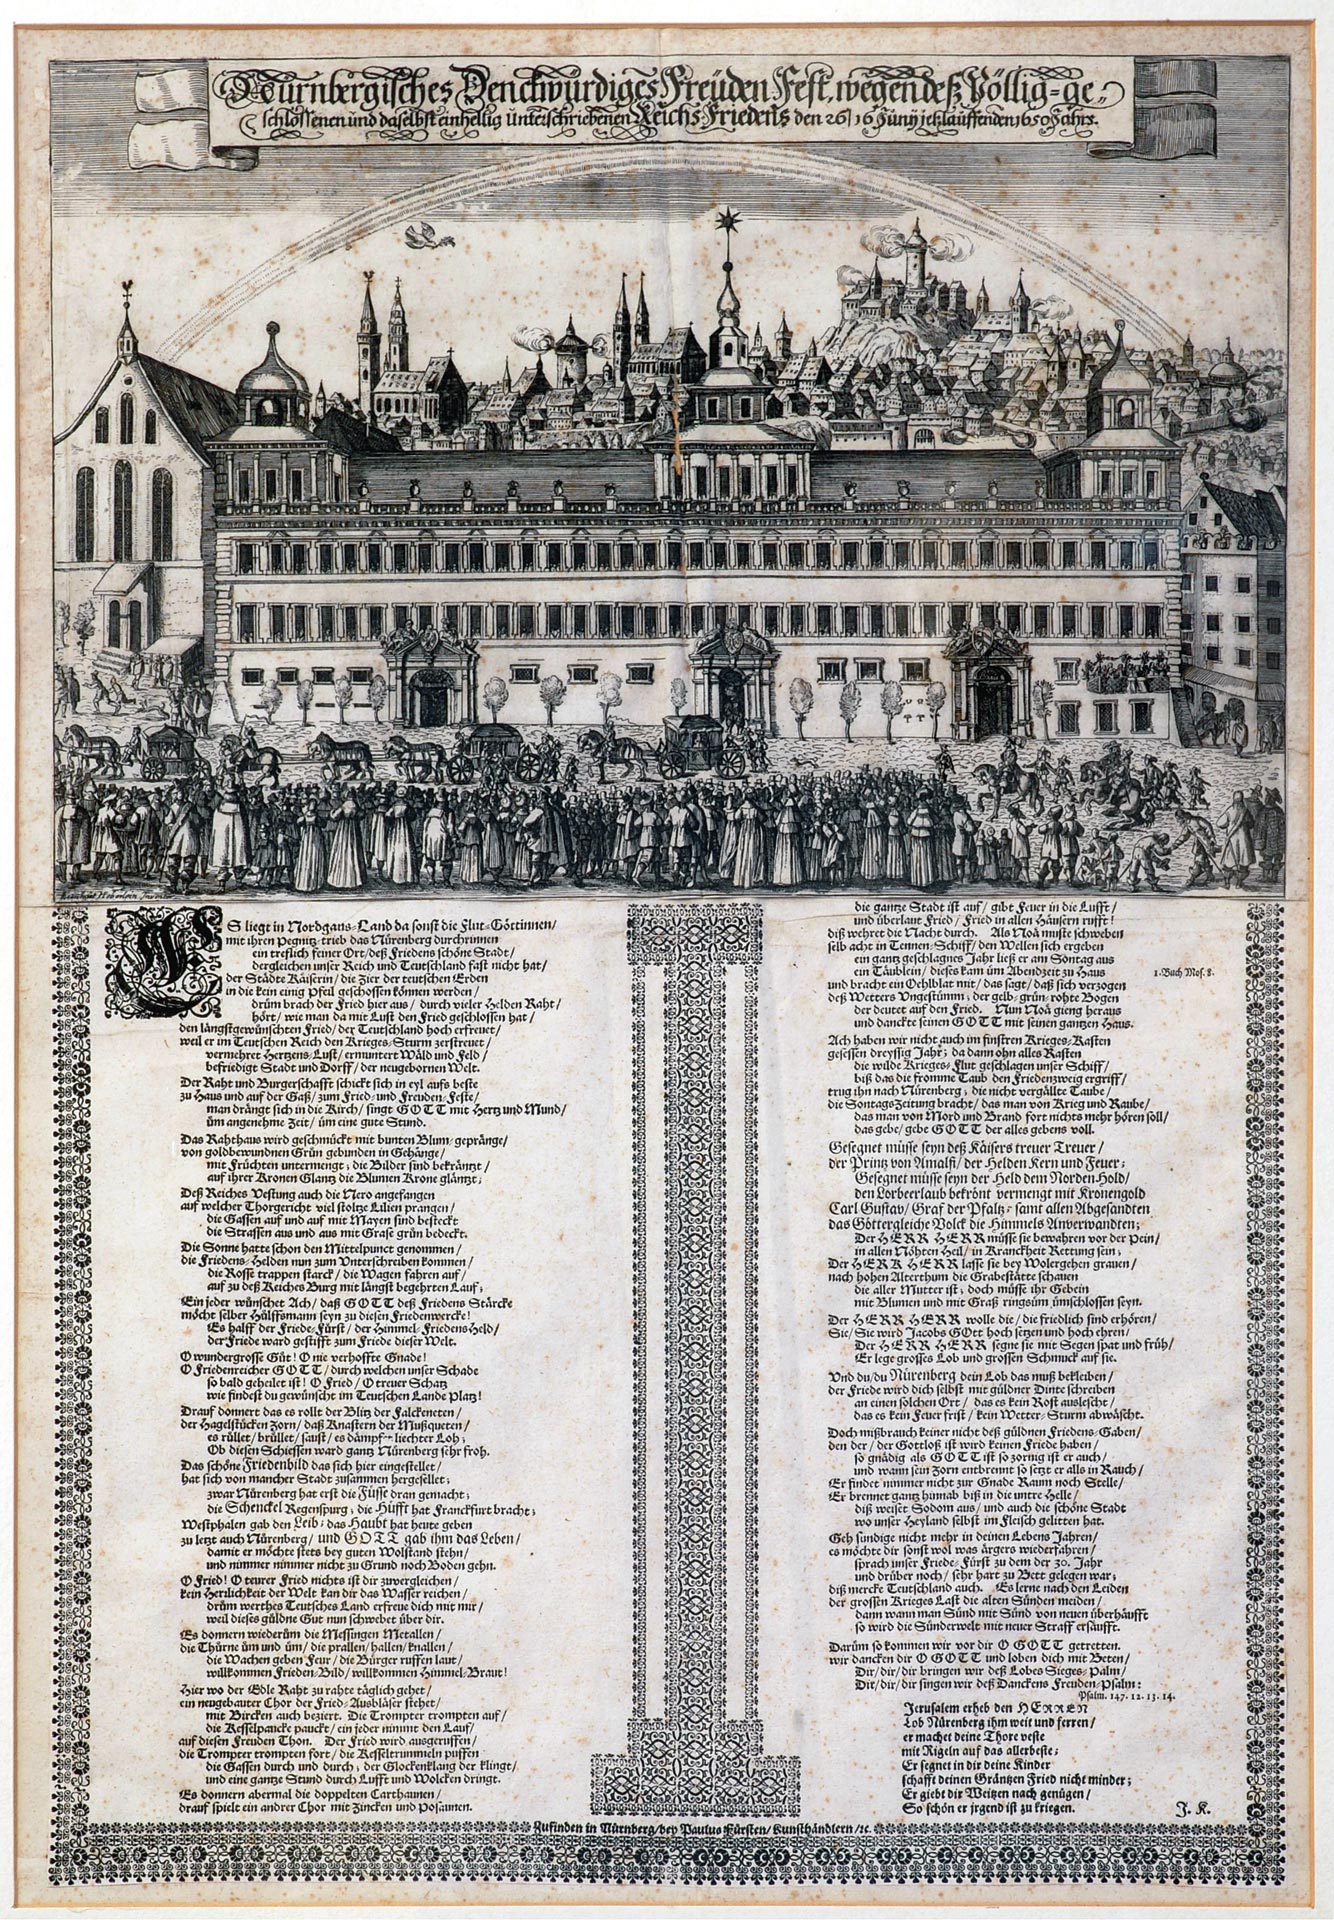 Nürnbergisches Denckwürdiges Freüden Fest, wegen deß Völlig-ge-
schloßenen und daselbst einhellig ünterschriebenen Reichs-Friedens den 26/16 Junÿ jetzlauffenden 1650 Jahrs.
ES liegt in Nordgaus-Land da sonst die Flut-Göttinnen/
mit ihren Pegnitz-trieb das Nürenberg durchrinnen
ein treflich feiner Ort/deß Friedens schöne Stadt/
dergleichen unser Reich und Teutschland fast nicht hat/
der Städte Käiserin/ die Zier der teutschen Erden
in die kein einig Pfeil geschossen können werden/
drüm brach der Fried hier aus/ durch vieler Helden Raht/
hört/ wie man da mit Lust den Fried geschlossen hat/
den längstgewünschten Fried/ der Teutschland hoch erfreuet/
weil er im Teutschen Reich den Krieges-Sturm zerstreuet/
vermehret Hertzens-Lust/ ermuntert Wäld und Feld/
befriedigt Stadt und Dorff/ der neugebornen Welt.
Der Raht und Burgerschafft schickt sich in eyl aufs beste
zu Haus und auf der Gaß/ zum Fried-und Freuden-Feste/
man drängt sich in die Kirch/ singt GOTT mit Hertz und Mund/
üm angenehme Zeit/ üm eine gute Stund.
Das Rahthaus wird geschmückt mit bunten Blum-gepränge/
von goldbewundnen Grün gebunden in Gehänge/
mit Früchten untermengt; die Bilder sind bekräntzt/
auf ihrer Kronen Glantz die Blumen Krone gläntzt;
Deß Reiches Vestung auch die Nero angefangen
auf welcher Thorgericht viel stoltze Lilien prangen/
die Gassen auf und auf mit Mayen sind besteckt
die Strassen aus und aus mit Grase grün bedeckt.
Die Sonne hatte schon den Mittelpunct genommen/
die Friedens-Helden nun zum Unterschreiben kommen/
die Rosse trappen starck/ die Wagen fahren auf/
auf zu deß Reiches Burg mit längst begehrten Lauf;
Ein jeder wünschet Ach/ daß GOTT deß Friedens Stärcke
möcht selber Hülffsmann seyn zu diesen Friedenwercke!
Es halff der Friede-Fürst/ der Himmel-Friedens Held/
der Friede ward gestifft zum Friede dieser Welt.
O wundergrosse Güt! O nie verhoffte Gnade!
O Friedenreicher GOTT/durch welchen unser Schade
so bald geheilet ist! O Fried/ O treuer Schatz
wie findest du gewünscht im Teutschen Lande Platz!
Drauf donnert das es rollt der Blitz der Falckeneten/
der Hagelstücken Zorn/ daß Knastern der Mußqueten/
es rüllet/ brüllet/ saust/ es dämpf liechter Loh;
Ob diesen Schiessen ward gantz Nürenberg sehr froh.
Das schöne Friedenbild das sich hier eingestellet/
hat sich von mancher Stadt zusammen hergesellet;
zwar Nürenberg hat erst die Füsse dran gemacht;
die Schenckel Regenspurg; die Hüfft hat Franckfurt bracht;
Westphalen gab den Leib; das Haubt hat heute geben
zu letzt auch Nürenberg/ und GOTT gab ihm das Leben/
damit er möchte stets bey guten Wolstand stehn/
und nimmer nimmer nicht zu Grund noch Boden gehn.
O Fried! O teurer Fried nichts ist dir zuvergleichen/
kein Herrlichkeit der Welt kan dir das Wasser reichen/
drüm werthes Teutsches Land erfreue dich mit mir/
weil dieses güldne Gut nun schwebet über dir.
Es donnern wiederüm die Messingen Metallen/
die Thürne üm und üm/ die prallen/ hallen/ knallen/
die Wachen geben Feur/ die Bürger ruffen laut/
willkommen Frieden-Bild/ willkommen Himmel-Braut!
Hier wo der Edle Raht zu rahte täglich gehet/
ein neugebauter Chor der Fried-Ausbläser stehet/
mit Bircken auch beziert. Die Trompter trompten auf/
die Kesselpaucke pauckt/ ein jeder nimmt den Lauf/
auf diesen Freuden Thon. Der Fried wird ausgeruffen/
die Trompter trompten fort/ die Kesseltrummeln puffen
die Gassen durch und durch; der Glockenklang der klingt/
und eine gantze Stund durch Lufft und Wolcken dringt.
Es donnern abermal die doppelten Carthaunen/
drauf spielt ein andrer Chor mit Zincken und Posaunen.
die gantze Stadt ist auf/ gibt Feuer in die Lufft/
und überlaut Fried/ Fried in allen Häusern rufft!
diß wehret die Nacht durch. Als Noä muste schweben
selb acht in Tennen-Schiff/ den Wellen sich ergeben
ein gantz geschlagnes Jahr ließ er am Sontag aus
ein Täublein/ dieses kam üm Abendzeit zu Haus
1. Buch Mos. 8.
und bracht ein Oehlblat mit/ das sagt/ daß sich verzogen
deß Wetters Ungestümm; der gelb-grün-rohte Bogen
der deutet auf den Fried. Nun Noä gieng heraus
und danckte seinen GOTT mit seinen gantzen Haus.
Ach haben wir nicht auch im finstren Krieges-Kasten
gesessen dreyssig Jahr; da dann ohn alles Rasten
die wilde Krieges-Flut geschlagen unser Schiff/
biß das die fromme Taub den Friedenzweig ergriff/
trug ihn nach Nürenberg; die nicht vergällte Taube/
die Sontags-Zeitung bracht/ das man von Krieg und Raube/
das man von Mord und Brand fort nichts mehr hören soll/
das gebe/ gebe GOTT der alles gebens voll.
Gesegnet müsse seyn deß Käisers treuer Treuer/
der Printz von Amalfi/ der Helden Kern und Feuer;
Gesegnet müsse seyn der Held dem Norden-Hold/
den Lorbeerlaub bekrönt vermengt mit Kronengold
Carl Gustav/ Graf der Pfaltz- samt allen Abgesandten
das Göttergleiche Volck die Himmels Anverwandten;
Der HERR HERR müsse sie bewahren vor der Pein/
in allen Nöhten Heil/ in Kranckheit Rettung sein;
Der HERR HERR lasse sie bey Wolergehen grauen/
nach hohen Alterthum die Grabestätte schauen
die aller Mutter ist; doch müsse ihr Gebein
mit Blumen und mit Graß ringsüm ümschlossen seyn.
Der HERR HERR wolle die/ die friedlich sind erhören/
Sie/ Sie wird Jacobs GOtt hoch setzen und hoch ehren/
Der HERR HERR segne sie mit Segen spat und früh/
Er lege grosses Lob und grossen Schmuck auf sie.
Und du/du Nürenberg dein Lob das muß bekleiben/
der Friede wird dich selbst mit güldner Dinte schreiben
an einen solchen Ort/ das es kein Rost auslescht/
das es kein Feuer frist/ kein Wetter-Sturm abwäscht.
Doch mißbrauch keiner nicht deß güldnen Friedens-Gaben/
den der/ der Gottloß ist wird keinen Friede haben/
so gnädig als GOTT ist so zornig ist er auch/
und wann sein Zorn entbrennt so setzt er alls in Rauch/
Er findet nimmer nicht zur Gnade Raum noch Stelle/
Er brennet gantz hinnab biß in die untre Helle/
diß weiset Sodom aus/ und auch die schöne Stadt
wo unser Heyland selbst im Fleisch gelitten hat.
Geh sündige nicht mehr in deinen Lebens Jahren/
es möchte dir sonst wol was ärgers wiederfahren/
sprach unser Friede-Fürst zu dem der 30. Jahr
und drüber noch/ sehr hart zu Bett gelegen war;
diß mercke Teutschland auch. Es lerne nach den Leiden
der grossen Krieges Last die alten Sünden meiden/
dann wann man Sünd mit Sünd von neuen überhäufft
so wird die Sünderwelt mit neuer Straff ersäufft.
Darüm so kommen wir vor dir O GOTT getretten.
wir dancken dir O GOTT und loben dich mit Beten/
Dir/ dir/ dir bringen wir deß Lobes Sieges-Palm/
Dir/ dir/ dir singen wir deß Danckens Freuden-Psalm:
Psalm. 147. 12. 13. 14.
Jerusalem erheb den HERREN
Lob Nürenberg ihm weit und ferren/
er machet deine Thore veste
mit Rigeln auf das allerbeste;
Er segnet in dir deine Kinder
schafft deinen Gräntzen Fried nicht minder;
Er giebt dir Weitzen nach genügen/
So schön er jrgend ist zu kriegen.
J. K.
Zufinden in Nürnberg/bey Paulus Fürsten/ Kunsthändlern/ ec.